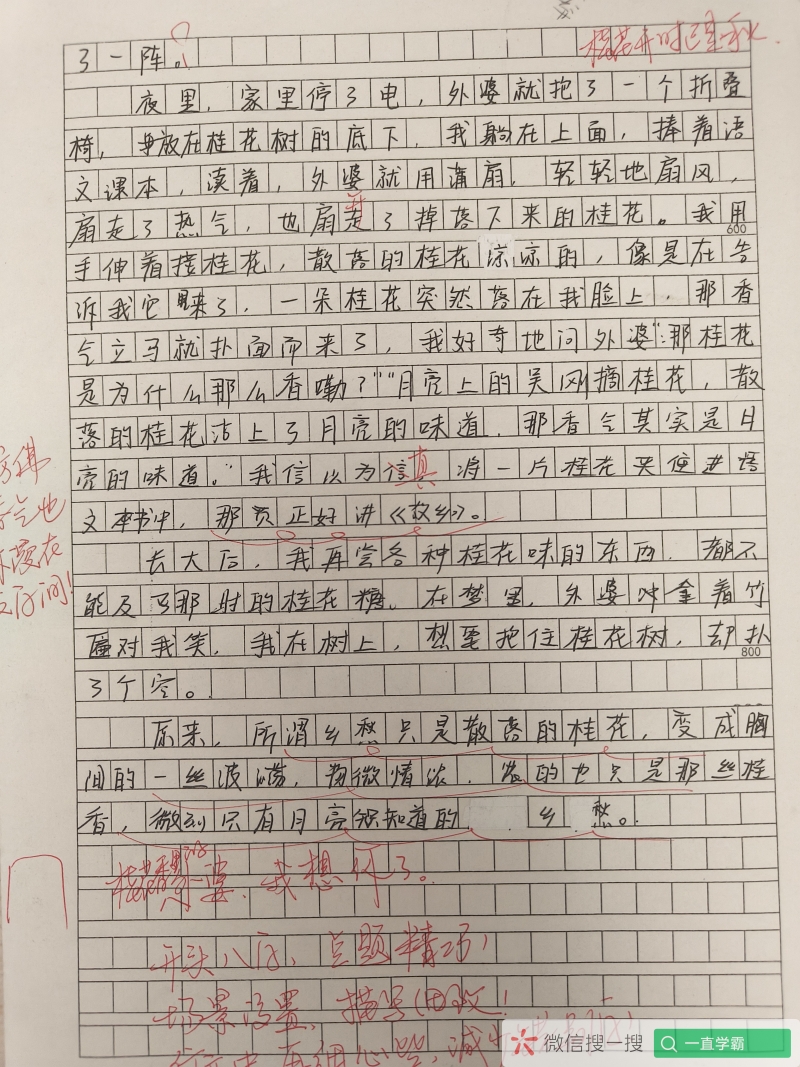 桂花开时已是秋
了一阵。
夜里，家里停了电，外婆就把了一个折叠
椅，放在桂花树的底下，我躺在上面，捧着语
文课本，读着，外婆就用蒲扇，轻轻地扇风，
扇走了热气，也扇走了掉落下来的桂花。我用
600
手伸着接桂花，散落的桂花凉凉的，像是在告
诉我它来了，一朵桂花突然落在我脸上，那香
气立马就扑面而来了，我好奇地问外婆“：那桂花
是为什么那么香嘞？”“月亮上的吴刚摘桂花，散
落的桂花沾上了月亮的味道，那香气其实是月
亮的味道。”我信以为信真将一片桂花夹进语
文本书中，那页正好讲《故乡》。
长大后，我再尝各种桂花味的东西，都不
能及了那时的桂花糖。在梦里，外婆拿着竹
匾对我笑，我在树上，想要抱住桂花树，却扑
800
了个空。
原来，所谓乡愁只是散落的桂花，变成胸
间的一丝波澜，微情浓，浓的也只是那丝桂
香，微到只有月亮才知道的乡愁。
婆，我想你了。
开头八段，点题精巧！
场景设置，描写细致！
微信搜一搜
一直学霸